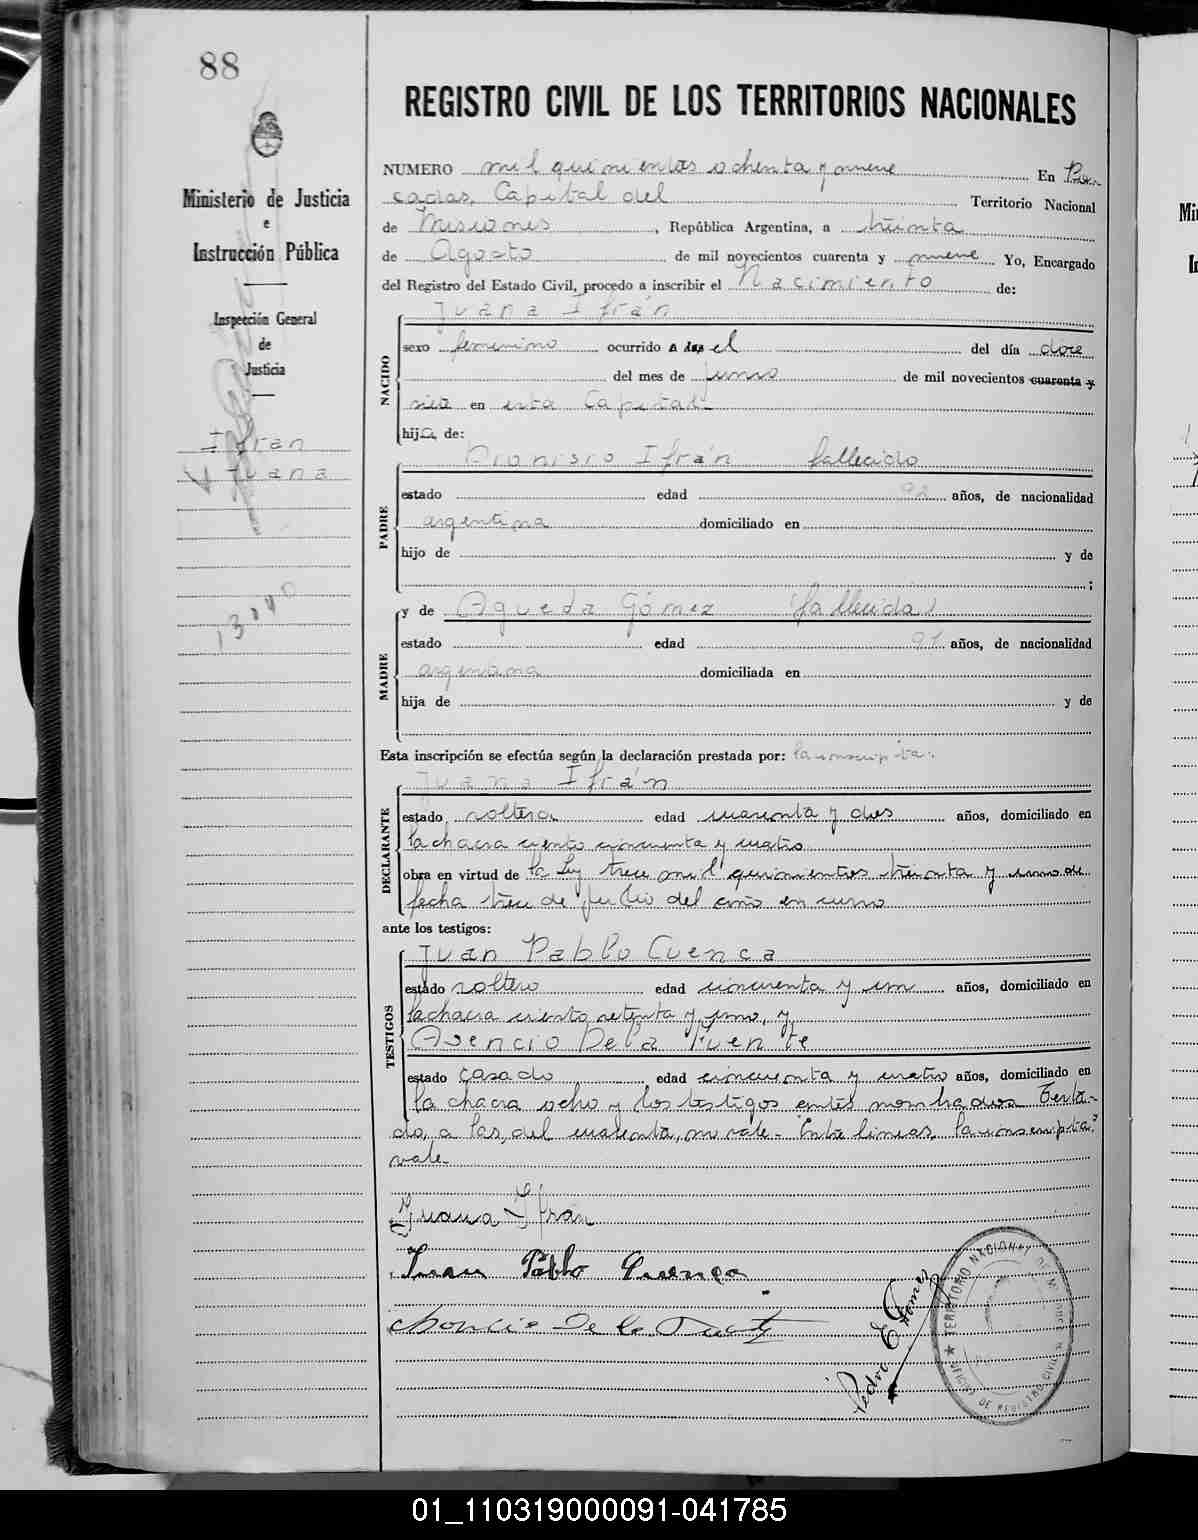 88
Ministerio de Justicia
e
Instrucción Pública
Inspección General
de
Justicia
Ifran
Juana
13040
REGISTRO CIVIL DE LOS TERRITORIOS NACIONALES
NUMERO mil quinientos ochenta y nueve En Po
sadas, Capital del Territorio Nacional
de Misiones, República Argentina, a treinta
de Agosto de mil novecientos cuarenta y nueve Yo, Encargado
del Registro del Estado Civil, procedo a inscribir el Nacimiento de:
NACIDO
Juana Ifrán
sexo femenino ocurrido a las el del día doce
del mes de junio de mil novecientos cuarenta y
siete en esta Capital-
hija, de:
PADRE
Dionisio Ifrán fallecido
estado edad 92 años, de nacionalidad
argentina domiciliado en
hijo de y de
;
MADRE
y de Agueda Gómez (fallecida)
estado edad 91 años, de nacionalidad
argentina domiciliada en
hija de y de
Esta inscripción se efectúa según la declaración prestada por: la inscripta.
DECLARANTE
Juana Ifrán
estado soltera edad cuarenta y dos años, domiciliado en
la chacra ciento cincuenta y cuatro
obra en virtud de la Ley trece mil quinientos treinta y uno de
fecha trece de Julio del año en curso
ante los testigos:
TESTIGOS
Juan Pablo Cuenca
estado soltero edad cincuenta y un años, domiciliado en
la chacra ciento setenta y uno, y
Asencio De la Fuente
estado casado edad cincuenta y cuatro años, domiciliado en
la chacra ocho y los testigos antes nombrados Testa-
do, a las, del cuarenta, no vale.- Entre lineas, la inscripta:
vale-
Juana Ifrán
Juan Pablo Cuenca
Asencio De la Fuente
Pedro E Gomez
TERRITORIO NACIONAL DE MISIONES
OFICINA DE REGISTRO CIVIL
Mi
I
01_110319000091-041785